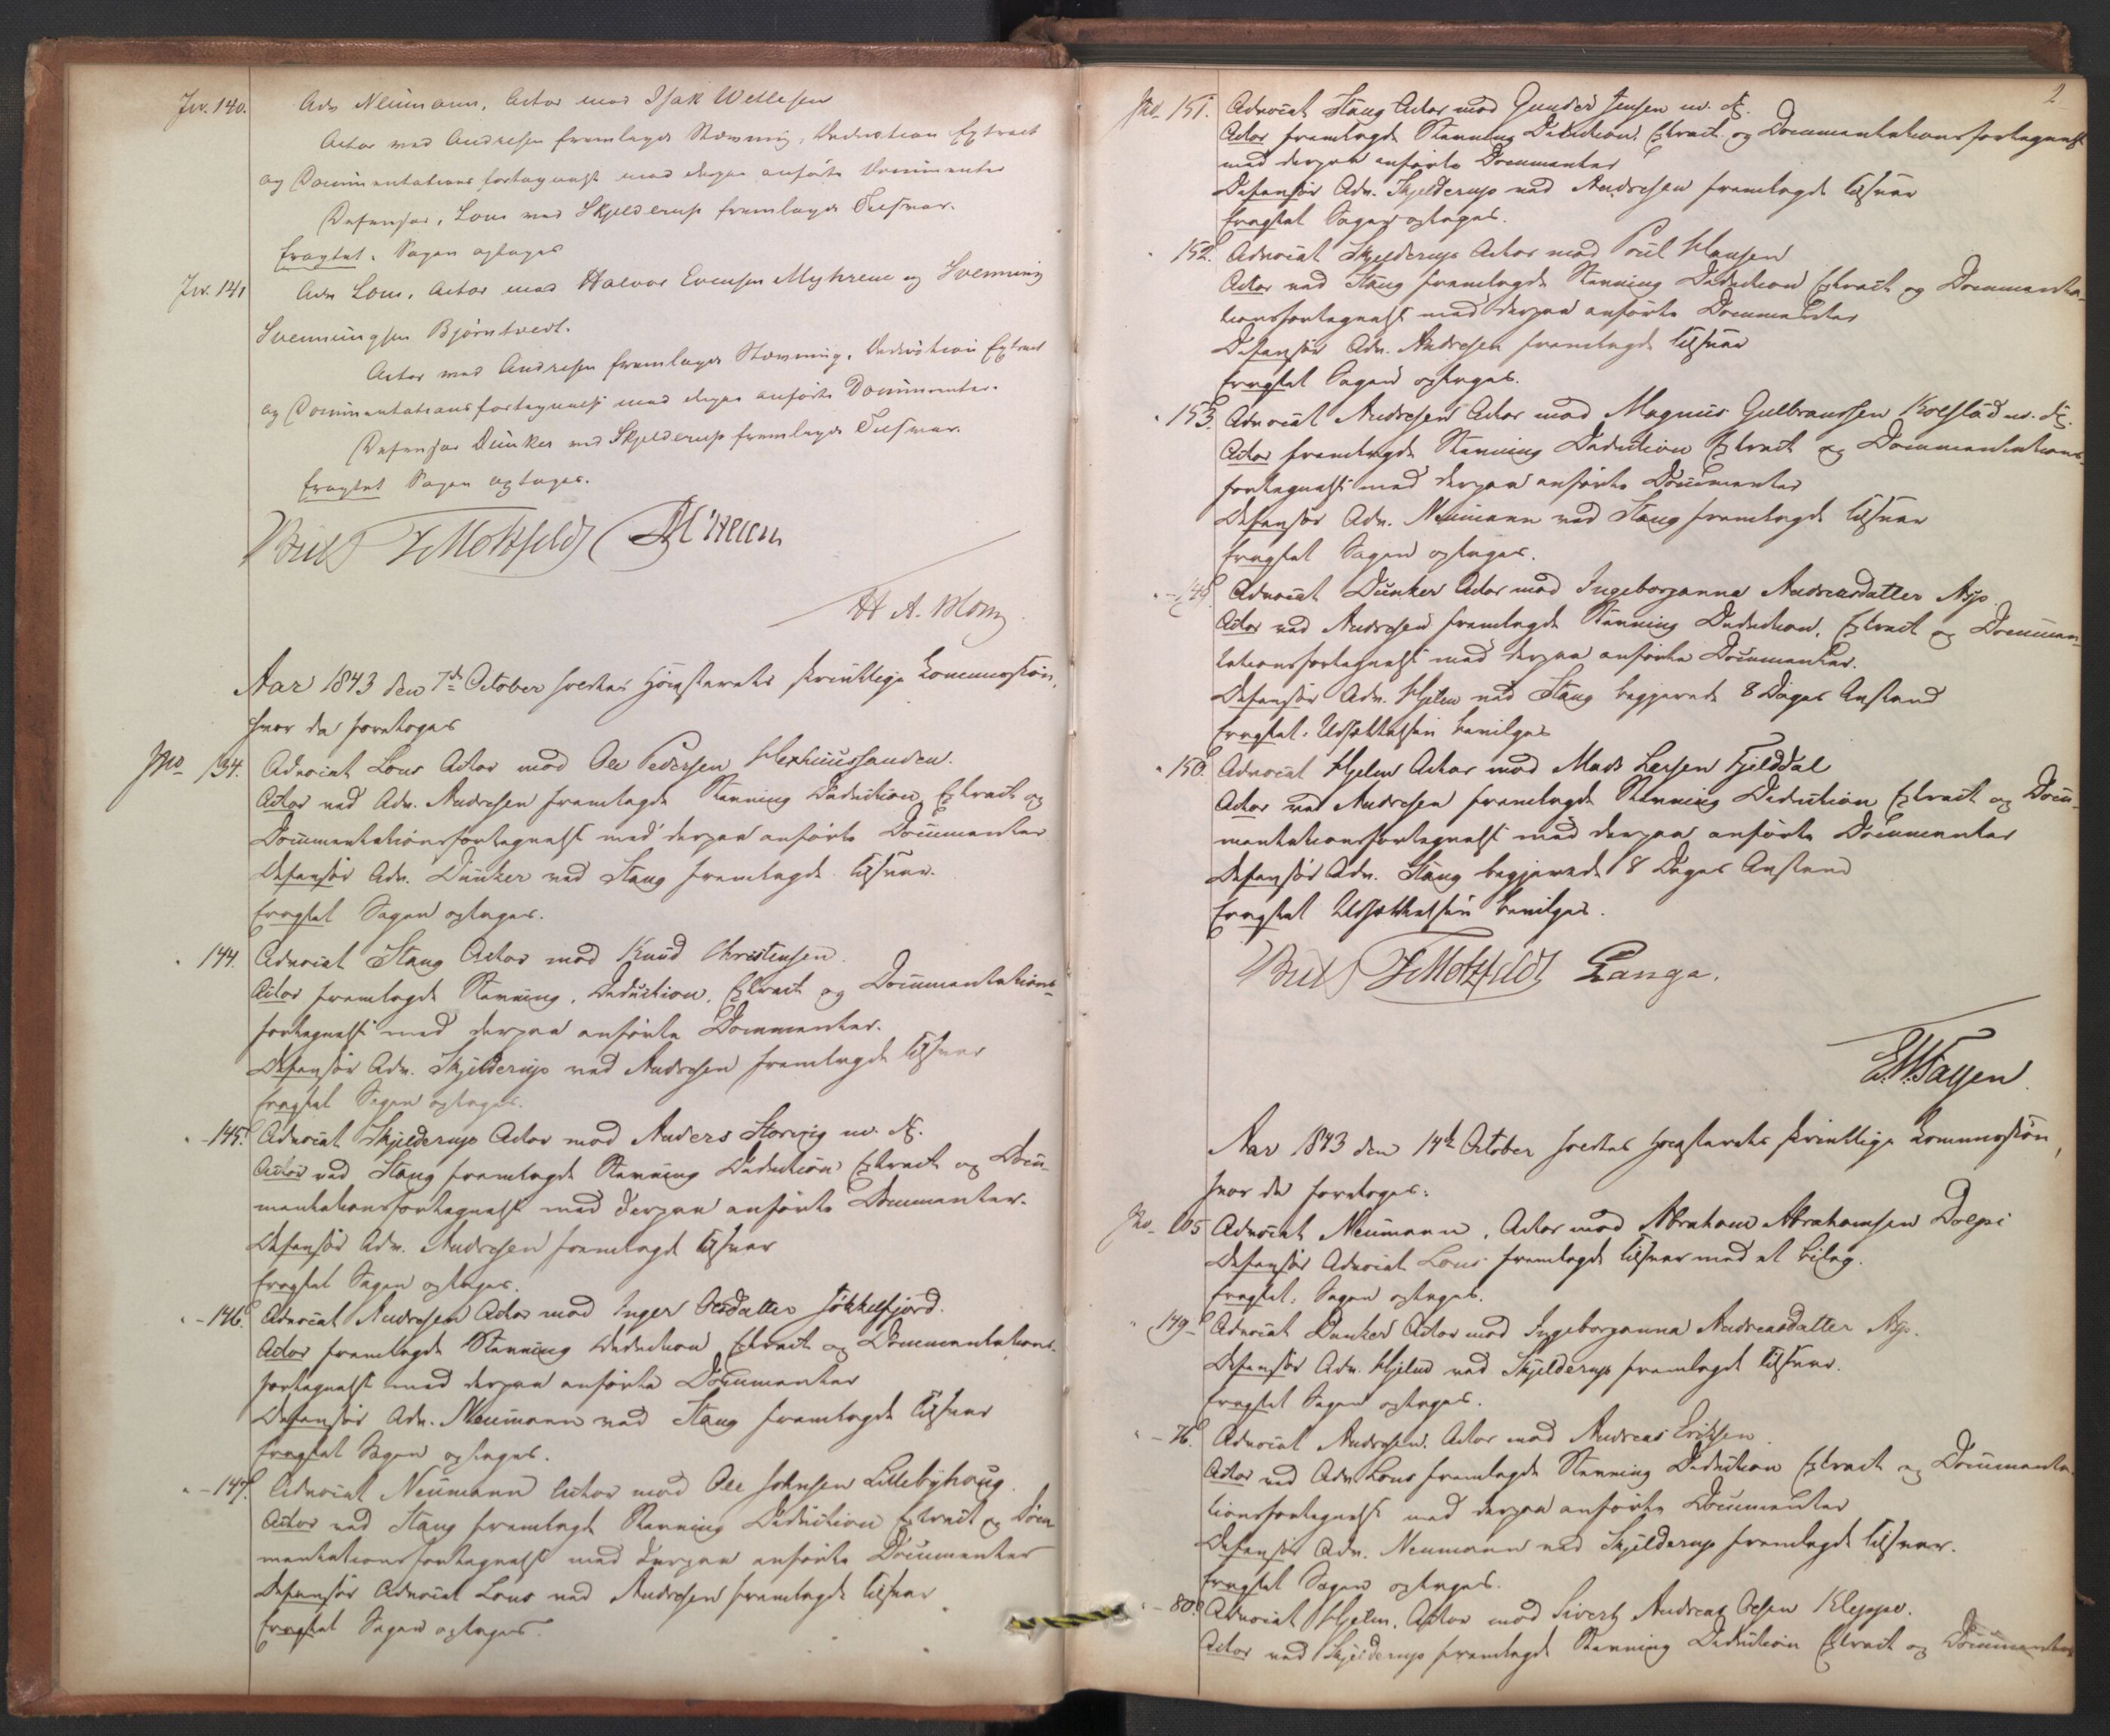 No. 140. Adv Neumann, Actor mod Isak Wellesen
Actor ved Andresen fremlagde Stævning, Deduction Extract
og Documentationsfortegnelse med derpaa anførte Documenter
Defensor, Lous ved Skjelderup fremlagde Tilsvar.
Eragtet. Sagen optages
No. 141 Adv Lous. Actor mod Halvor Evensen Myhrene og Svenning
Svenningsen Bjørntvedt.
Actor ved Andresen fremlagde Stævning, Deduction Extract
og Documentationsfortegnelse med derpaa anførte Documenter.
Defensor Dunker ved Skjelderup fremlagde Tilsvar.
Eragtet Sagen optages.
J Motzfeldt
Aar 1843 den 7de October holdtes Høiesterets skriftlige Commission,
hvor da foretoges
No 134. Advocat Lous Actor mod Ole Pedersen
Actor ved Adv. Andresen fremlagde Stevning Deduction Extract og
Documentationsfortegnelse med derpaa anførte Documenter
Defensor Adv. Dunker ved Stang fremlagde Tilsvar.
Eragtet Sagen optages.
" 144. Advocat Stang Actor mod Knud Christensen.
Actor fremlagde Stevning, Deduction, Extract og Documentations-
fortegnelse med derpaa anførte Documenter.
Defensor Adv. Skjelderup ved Andresen fremlagde Tilsvar
Eragtet Sagen optages.
" - 145. Advocat Skjelderup Actor mod Anders Storvig m. fl.
Actor ved Stang fremlagde Stevning Deduction Extract og Docu-
mentationsfortegnelse med derpaa anførte Documenter.
Defensor Adv. Andresen fremlagde Tilsvar
Eragtet Sagen optages.
" - 146. Advocat Andresen Actor mod Inger Olsdatter Jøkkelfjord.
Actor fremlagde Stevning Deduction Extract og Documentations-
fortegnelse med derpaa anførte Documenter
Defensor Adv. Neumann ved Stang fremlagde Tilsvar
Eragtet Sagen optages.
" - 147. Advocat Neumann Actor mod Ole Johnsen Lillebyhoug.
Actor ved Stang fremlagde Stevning Deduction Extract og Docu
mentationsfortegnelse med derpaa anførte Documenter
Defensor Advocat Lous ved Andresen fremlagde Tilsvar
Eragtet Sagen optages.
2
No 151. Advocat Stang Actor mod Gunder Jensen m. fl.
Actor fremlagde Stevning Deduction Extract og Documentationsfortegnelse
med derpaa anførte Documenter
Defensor Adv. Skjelderup ved Andresen fremlagde Tilsvar
Eragtet Sagen optages.
" 152. Advocat Skjelderup Actor mod Poul Hansen
Actor ved Stang fremlagde Stevning Deduction Extract og Documenta-
tionsfortegnelse med derpaa anførte Documenter
Defensor Adv. Andresen fremlagde Tilsvar
Eragtet Sagen optages.
" 153. Advocat Andresen Actor mod Magnus Gulbranssen Kolstad m. fl.
Actor fremlagde Stevning Deduction Extract og Documentations-
fortegnelse med derpaa anførte Documenter
Defensor Adv. Neumann ved Stang fremlagde Tilsvar
Eragtet Sagen optages.
" - 149. Advocat Dunker Actor mod Ingeborganna Andreasdatter Asp
Actor ved Andresen fremlagde Stevning Deduction, Extract og Documen-
tationsfortegnelse med derpaa anførte Documenter.
Defensor Adv. Hjelm ved Stang begjærede 8 Dages Anstand
Eragtet. Udsættelsen bevilges
" 150. Advocat Hjelm Actor mod Mads Larsen Fjelddal
Actor ved Andresen fremlagde Stevning Deduction Extract og Docu-
mentationsfortegnelse med derpaa anførte Documenter
Defensor Adv. Stang begjærede 8 Dages Anstand
Eragtet Udsættelsen bevilges.
J Motzfeldt Lange.
Aar 1843 den 14de October holdtes Høiesterets skriftlige Commission,
hvor da foretoges:
No. 105 Advocat Neumann, Actor mod Abraham Abrahamsen Dolpi
Defensor Advocat Lous fremlagde Tilsvar med et Bilag.
Eragtet. Sagen optages.
" 149 - Advocat Dunker Actor mod Ingeborganna Andreasdatter Asp.
Defensor Adv. Hjelm ved Skjelderup fremlagde Tilsvar.
Eragtet Sagen optages.
" - 76. Advocat Andresen. Actor mod Andreas Eriksen.
Actor ved Adv. Lous fremlagde Stevning Deduction Extract og Documenta-
tionsfortegnelse med derpaa anførte Documenter
Defensor Adv. Neumann ved Skjelderup fremlagde Tilsvar.
Eragtet Sagen optages.
" - 80. Advocat Hjelm. Actor mod Sivert Andreas Olsen Kleppe.
Actor ved Skjelderup fremlagde Stevning Deduction Extract og Documenta